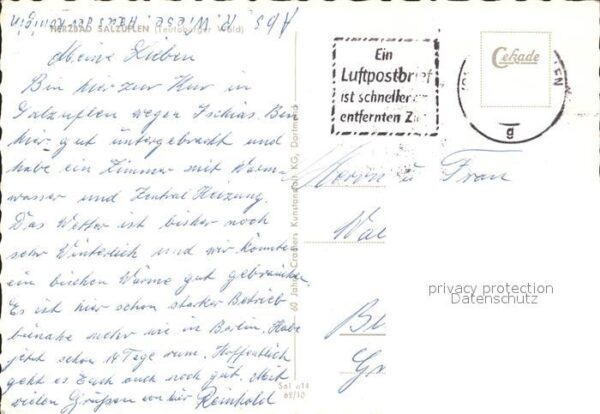 Abs. R. Wiese, Haus der Königin
HERZBAD SALZUFLEN (Teutoburger Wald)
Meine Lieben
Bin hier zur Kur in
Salzuflen wegen Ischias. Bin
hier gut untergebracht und
habe ein Zimmer mit Warm-
wasser und Zentral Heizung.
Das Wetter ist bisher noch
sehr Winterlich und wir könnten
ein bischen Wärme gut gebrauchen.
Es ist hier schon starker Betrieb
beinahe mehr wie in Berlin. Habe
jetzt schon 14 Tage rum. Hoffentlich
geht es Euch auch noch gut. Mit
vielen Grüssen von hier Reinhold
60 Jahre Cramers Kunstanstalt KG, Dortmund
Sal n14
62/10
Ein
Luftpostbrief
ist schneller
entfernten Z
Cekade
LEN
g
Herrn u Frau
Wal
Be
Gr
privacy protection
Datenschutz